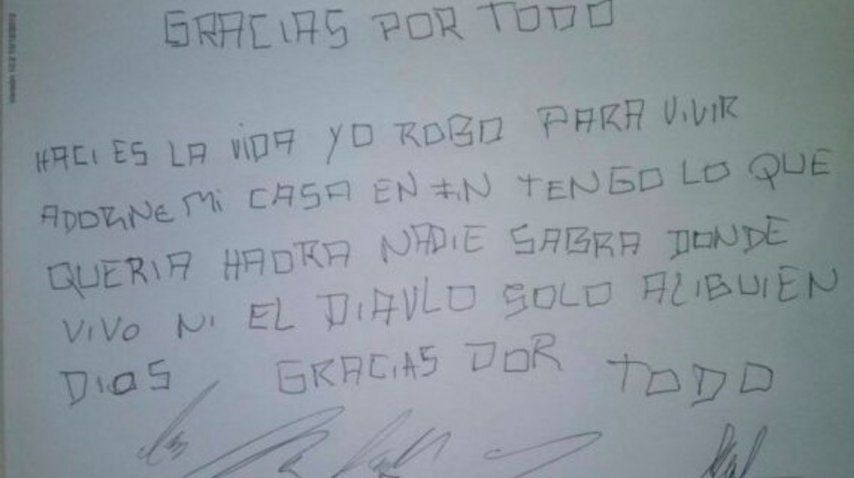 GRACIAS POR TODO
HACI ES LA VIDA YO ROBO PARA VIVIR
ADORNE MI CASA EN FIN TENGO LO QUE
QUERIA HAORA NADIE SABRA DONDE
VIVO NI EL DIAVLO SOLO
DIOS GRACIAS POR TODO